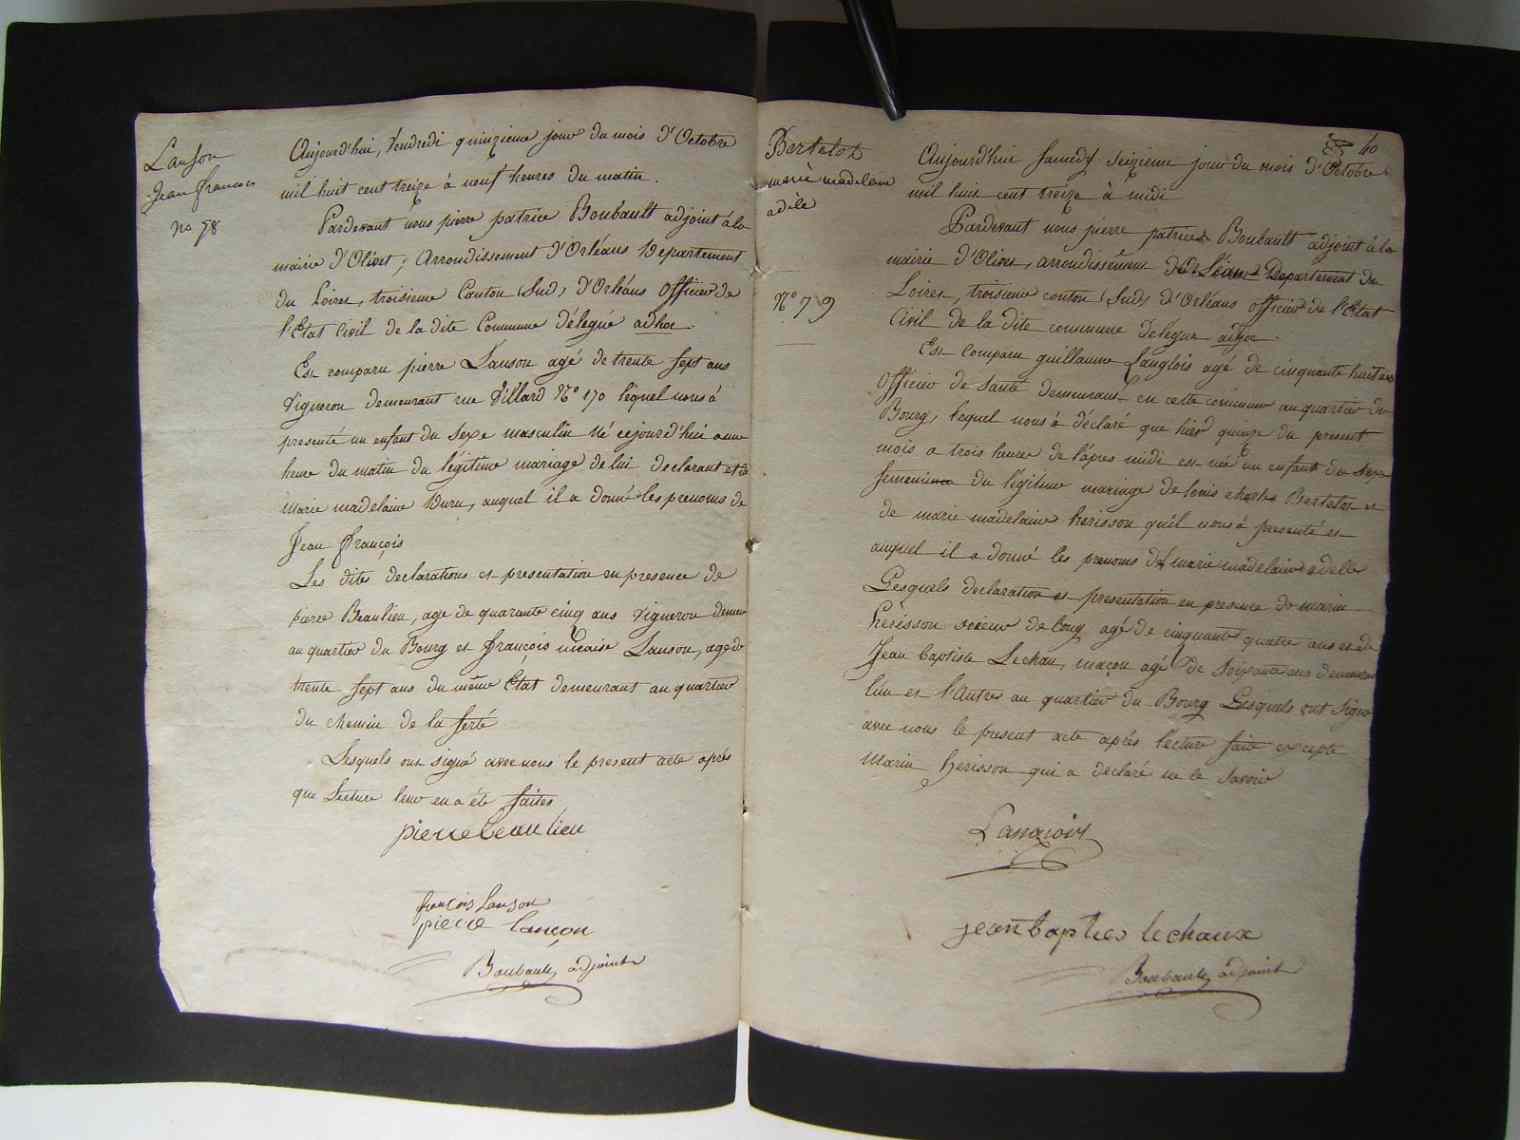 Lanson
Jean françois
No 78
Aujourd'hui, Vendredi quinzieme jour du mois d'Octobre
mil huit cent treize à neuf heures du matin.
Pardevant nous pierre patrice Boubault adjoint à la
mairie d'Olivet, Arrondissement d'Orléans Departement
du Loiret, troisieme Canton (Sud) d'Orléans Officier de
l'Etat Civil de la dite Commune délégué adhoc.
Est comparu pierre Lanson agé de trente sept ans
Vigneron demeurant rue Villard No 170 lequel nous à
presenté un enfant du Sexe masculin né cejourd'hui à une
heure du matin du légitime mariage de lui declarant et de
marie madelaine Duru, auquel il a donné les prenoms de
Jean françois
Les dites declarations et presentation en presence de
pierre Beaulieu, age de quarante cinq ans vigneron demeu
au quartier du Bourg et françois nicaise Lanson, age de
trente sept ans du même Etat demeurant au quartier
du chemin de la ferté
Lesquels ont signé avec nous le present acte après
que Lecture leur en a été faites
pierre beau lieu
françois Lanson
pierre lançon
Boubault adjoint
Bertelot
marie madelaine
adèle
No 79
40
Aujourd'hui Samedy Seizieme jour du mois d'Octobre
mil huit cent treize à midi
Pardevant nous pierre patrice Boubault adjoint à la
mairie d'Olivet, arrondissement d'Orléans Departement du
Loiret, troisieme conton (Sud) d'Orléans officier de l'Etat
Civil de la dite commune délégué adhoc.
Est Comparu guillaume Langlois agé de cinquante huit ans
Officier de Santé demeurant en cette commune au quartier du
Bourg, lequel nous à déclaré que hier quinze du present
mois a trois heure de l'après midi est née un enfant du Sexe
femeninea du légitime mariage de louis charles Bertelot et
de marie madelaine herisson qu'il nous à presenté et
auquel il a donné les prenoms de marie madelaine adelle
Lesquels declaration et presentation en presence de marin
hérisson scieur de long agé de cinquante quatre ans et de
Jean baptiste Lechau, maçon agé de soixante ans demeurant
lun et l'Autre au quartier du Bourg Lesquels ont signé
avec nous le present acte après lecture faite excepté
Marin herisson qui a declaré ne le savoir
Langlois
jean bapties lechaux
Boubault adjoint